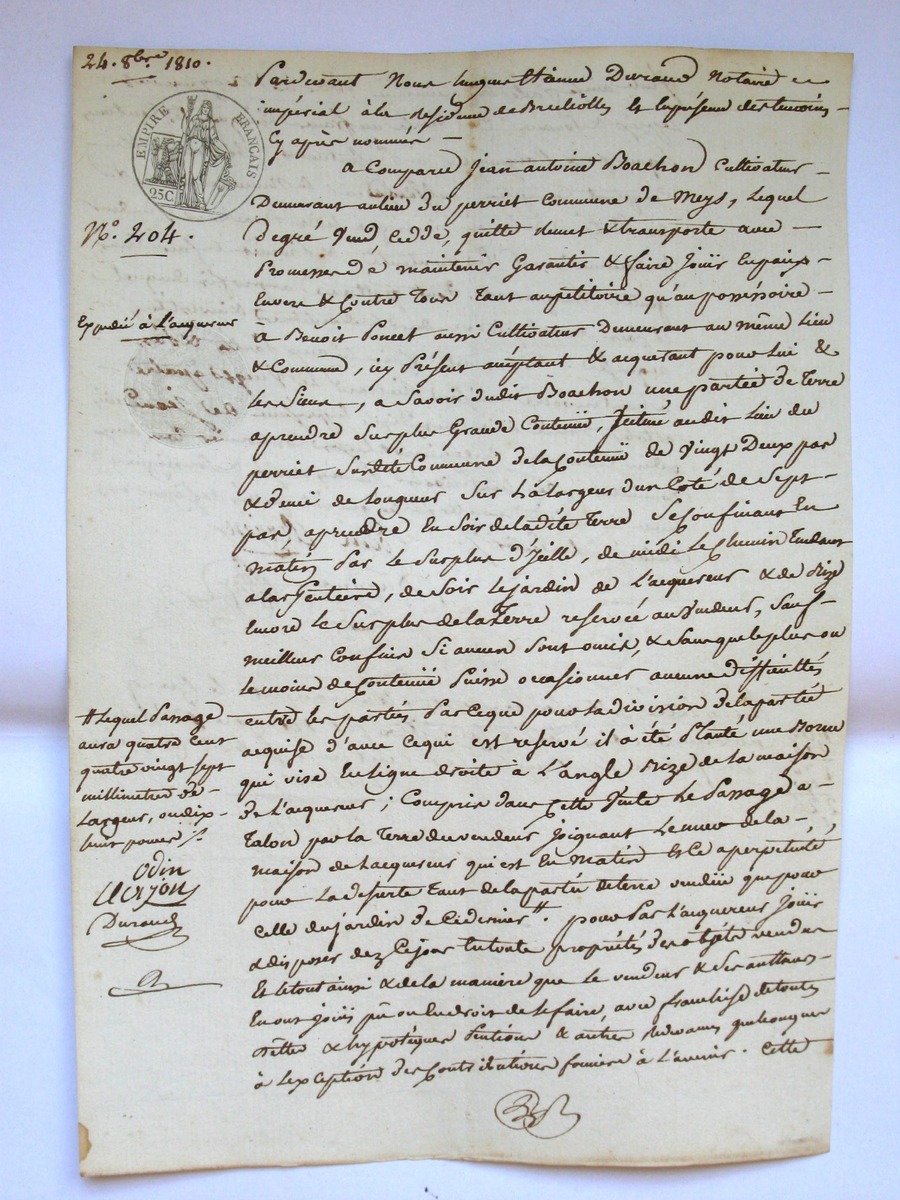 24. 8bre 1810.
EMPIRE FRANÇAIS
25C
N.o 204.
Expedié à l'acquereur
Pardevant Nous hugues Etienne Durand Notaire
impérial à la residence de Brulliolles Et En présence des temoins
Cy après nommés
a Comparu Jean antoine Boachon Cultivateur
Demeurant au lieu du perriet Commune de Meys, Lequel
Degré Vend, Cedde, quitte remet & transporte avec
Promesse de maintenir Garantir & faire Joüir En paix
Envers & Contre Tous Tant au petitoire qu'au possessoire
à Benoit Poncet aussi Cultivateur Demeurant au même Lieu
& Commune, icy Présent acceptant & acquerant pour Lui &
les Siens, a Savoir dudit Boachon une partie de Terre
aprendre Sur plus Grande Contenüe, Scitué audit Lieu du
perriet Susdite Commune de la Contenüe de Vingt Deux pas
& demi de Longueur Sur La Largeur d'un Coté de Sept
pas, aprendre En Soir de la dite Terre Se Confinant En
matin Par Le Surplus d'Icelle, de midi Le Chemin Tendant
a la Gentiere, de Soir Le jardin de L'acquereur & de Bize
Encore Le Surplus de la Terre reservée au Vendeur, Sauf
meilleurs Confins Si aucun Sont omis, & Sans que le plus ou
Le moins de Contenüe Puisse occasionner aucune difficultés
entre les parties Parceque pour la division de la partie
acquise d'avec Ce qui est reservé il à été Planté une Borne
qui vise En Ligne droite à L'angle Bize de la maison
de L'acquereur; Compris dans Cette Vente Le Passage a
Talon par la Terre du vendeur Joignant Le mur de la
maison de L'acquereur qui est En matin Et Ce a perpetuité
pour La deserte Tant de la partie de terre vendüe que pour
Celle du jardin de Ce dernier #. pour Par L'acquereur Joüir
& disposer dez Ce jour En toute propriétés des objets vendus
Et le tout ainsi & de la maniere que le vendeur & Ses autheurs
En ont Joüis pû ou En droit de le faire, avec franchise de toutes
dettes & hypotèques Pentions & autres redevances quelconques
à L'exception des Contributions fonciere à L'avenir. Cette
# Lequel Passage
aura quatre Cent
quatre vingt sept
millimetres de
Largeur, ou dix
huit pouces
Odin
Clerjon
Durand